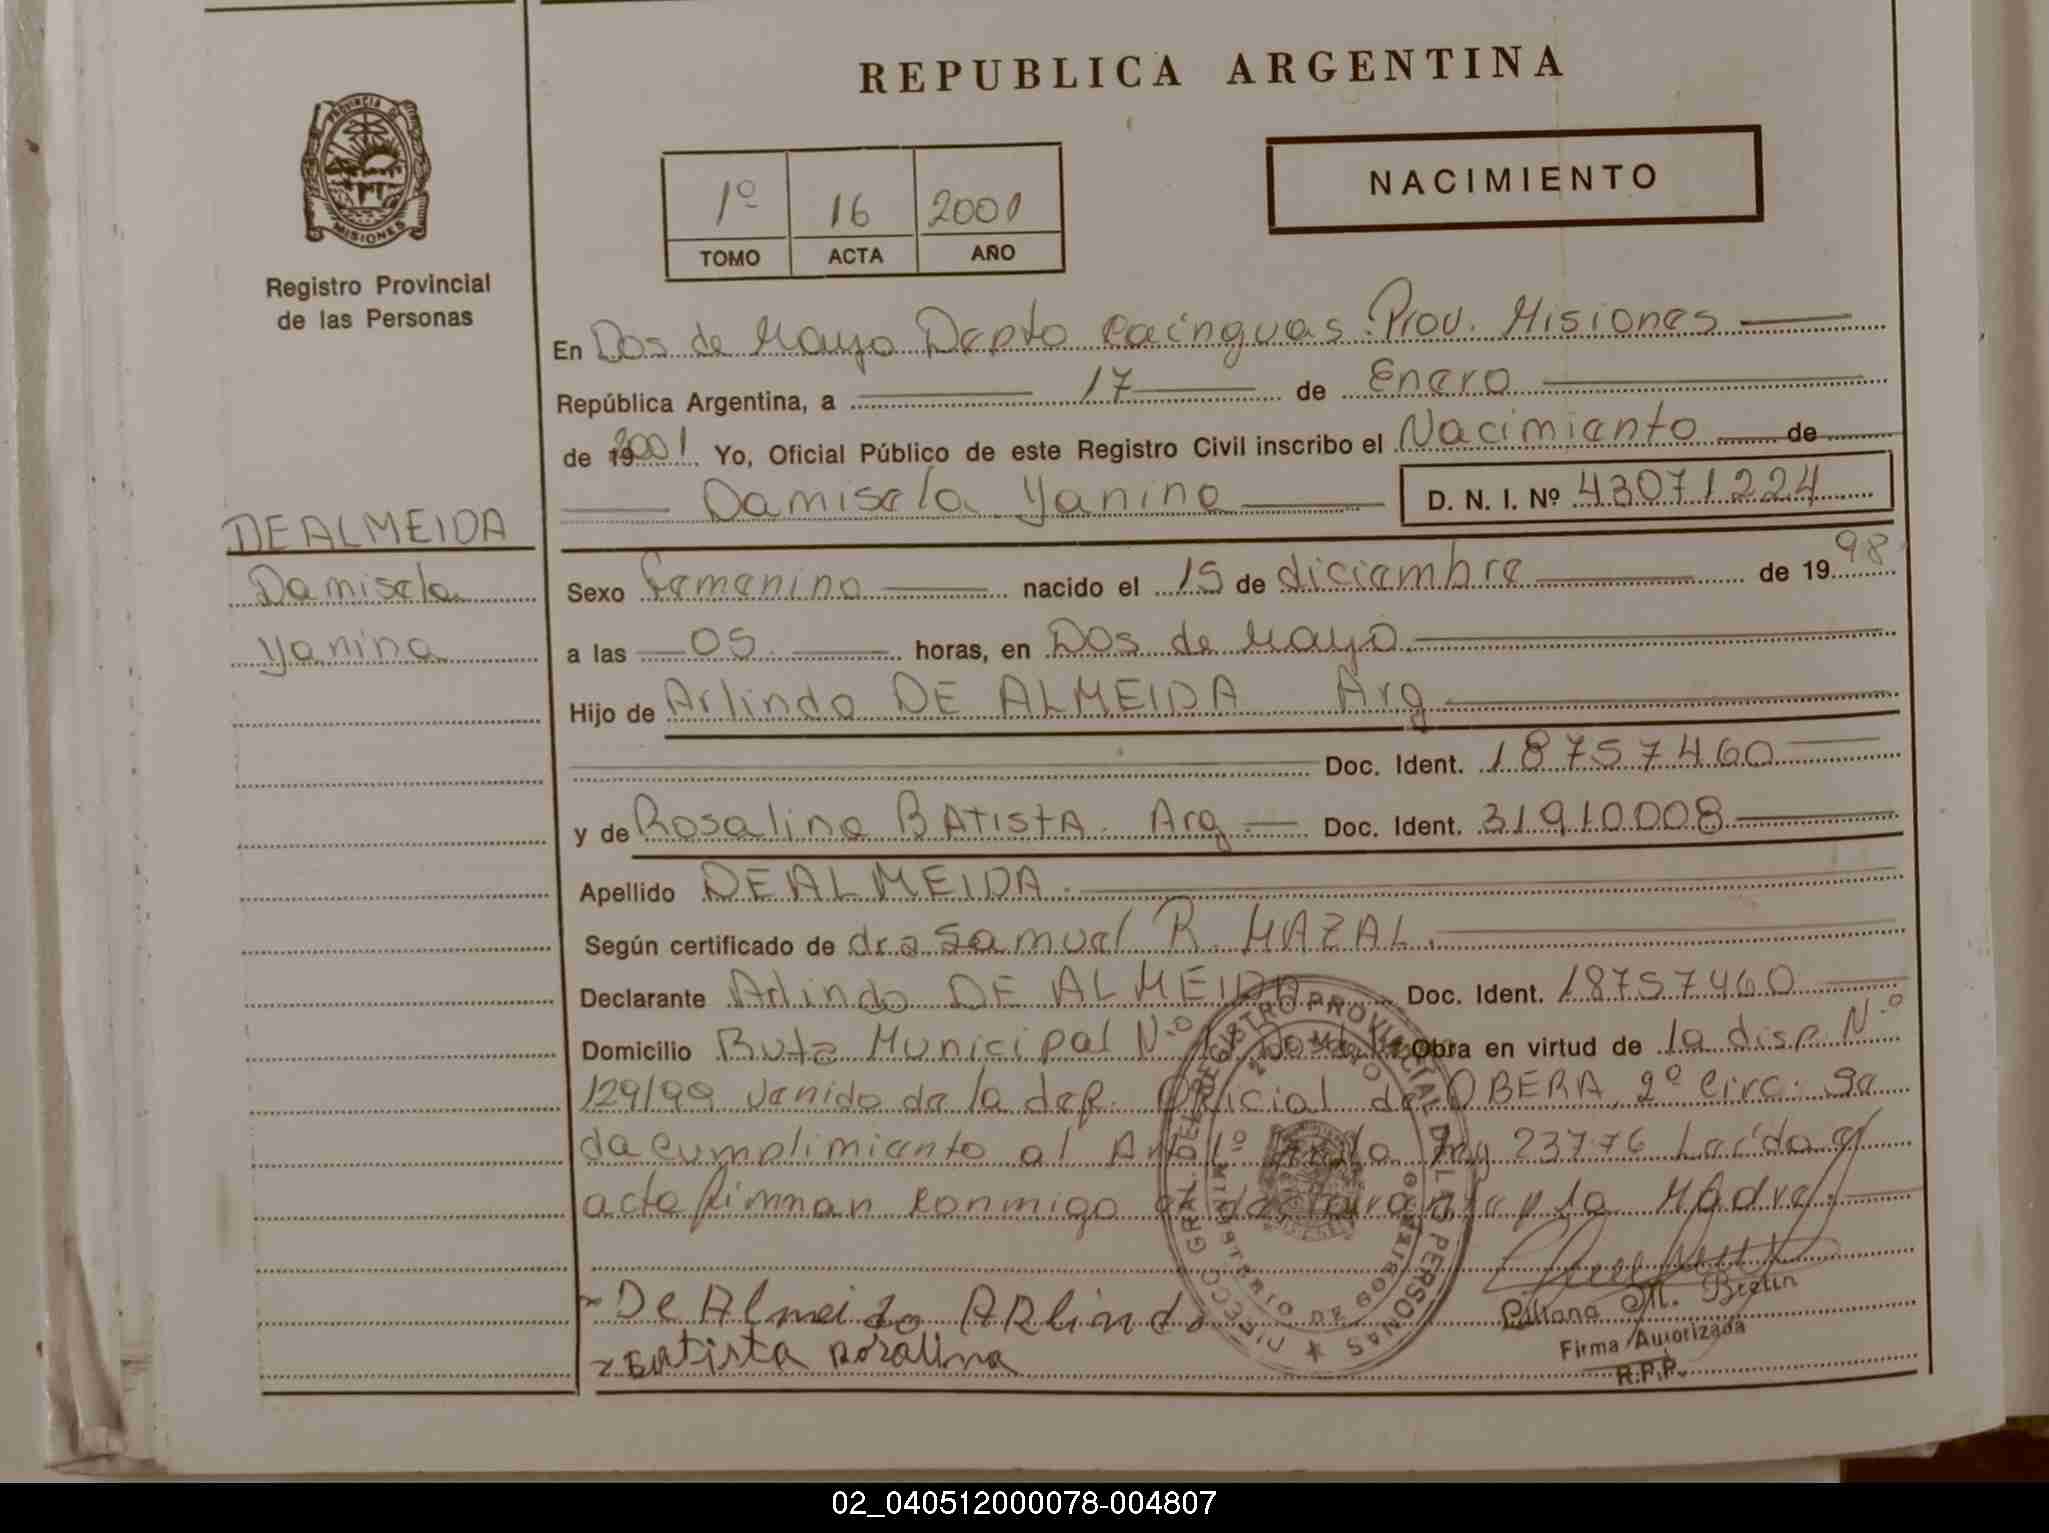 REPUBLICA ARGENTINA
PROVINCIA DE
MISIONES
Registro Provincial
de las Personas
1º 16 2001
TOMO ACTA AÑO
NACIMIENTO
En Dos de Mayo Depto Cainguas. Prov. Misiones
República Argentina, a 17 de Enero
de 2001 Yo, Oficial Público de este Registro Civil inscribo el Nacimiento de
Damisela Yanina D. N. I. Nº 43071224
DEALMEIDA
Damisela
Yanina
Sexo Femenino nacido el 15 de diciembre de 1998
a las 05 horas, en Dos de Mayo
Hijo de Arlindo DE ALMEIDA Arg
Doc. Ident. 18757460
y de Rosalina BATISTA. Arg Doc. Ident. 31910008
Apellido DEALMEIDA.
Según certificado de dra Samuel R. MAZAL.
Declarante Arlindo DE ALMEIDA Doc. Ident. 18757460
Domicilio Ruta Municipal N.º Obra en virtud de la disp. N.º
129/99 venido de la dep. Oficial de OBERA, 2º Circ: Se
da cumplimiento al Art 1º de la Ley 23776 Leída el
acta firman conmigo el declarante y la Madre.
De Almeida ARlindo
Batista Rosalina
Liliana M. Bretin
Firma Autorizada
R.P.P.
DIRECC. GRAL. DEL REGISTRO PROVINCIAL DE LAS PERSONAS
MINISTERIO DE GOBIERNO
02_040512000078-004807